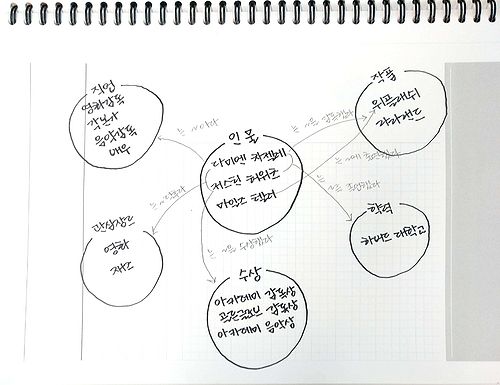 직업
영화감독
각본가
음악감독
배우
는 ~이다
인물
다미엔 차젤레
저스틴 허위츠
마일즈 텔러
는 ~을 감독했다
작품
위플래쉬
라라랜드
는 ~에 출연했다
관심장르
영화
재즈
는 ~을 졸업했다
학력
하버드 대학교
는 ~을 수상했다
수상
아카데미 감독상
골든글로브 감독상
아카데미 음악상